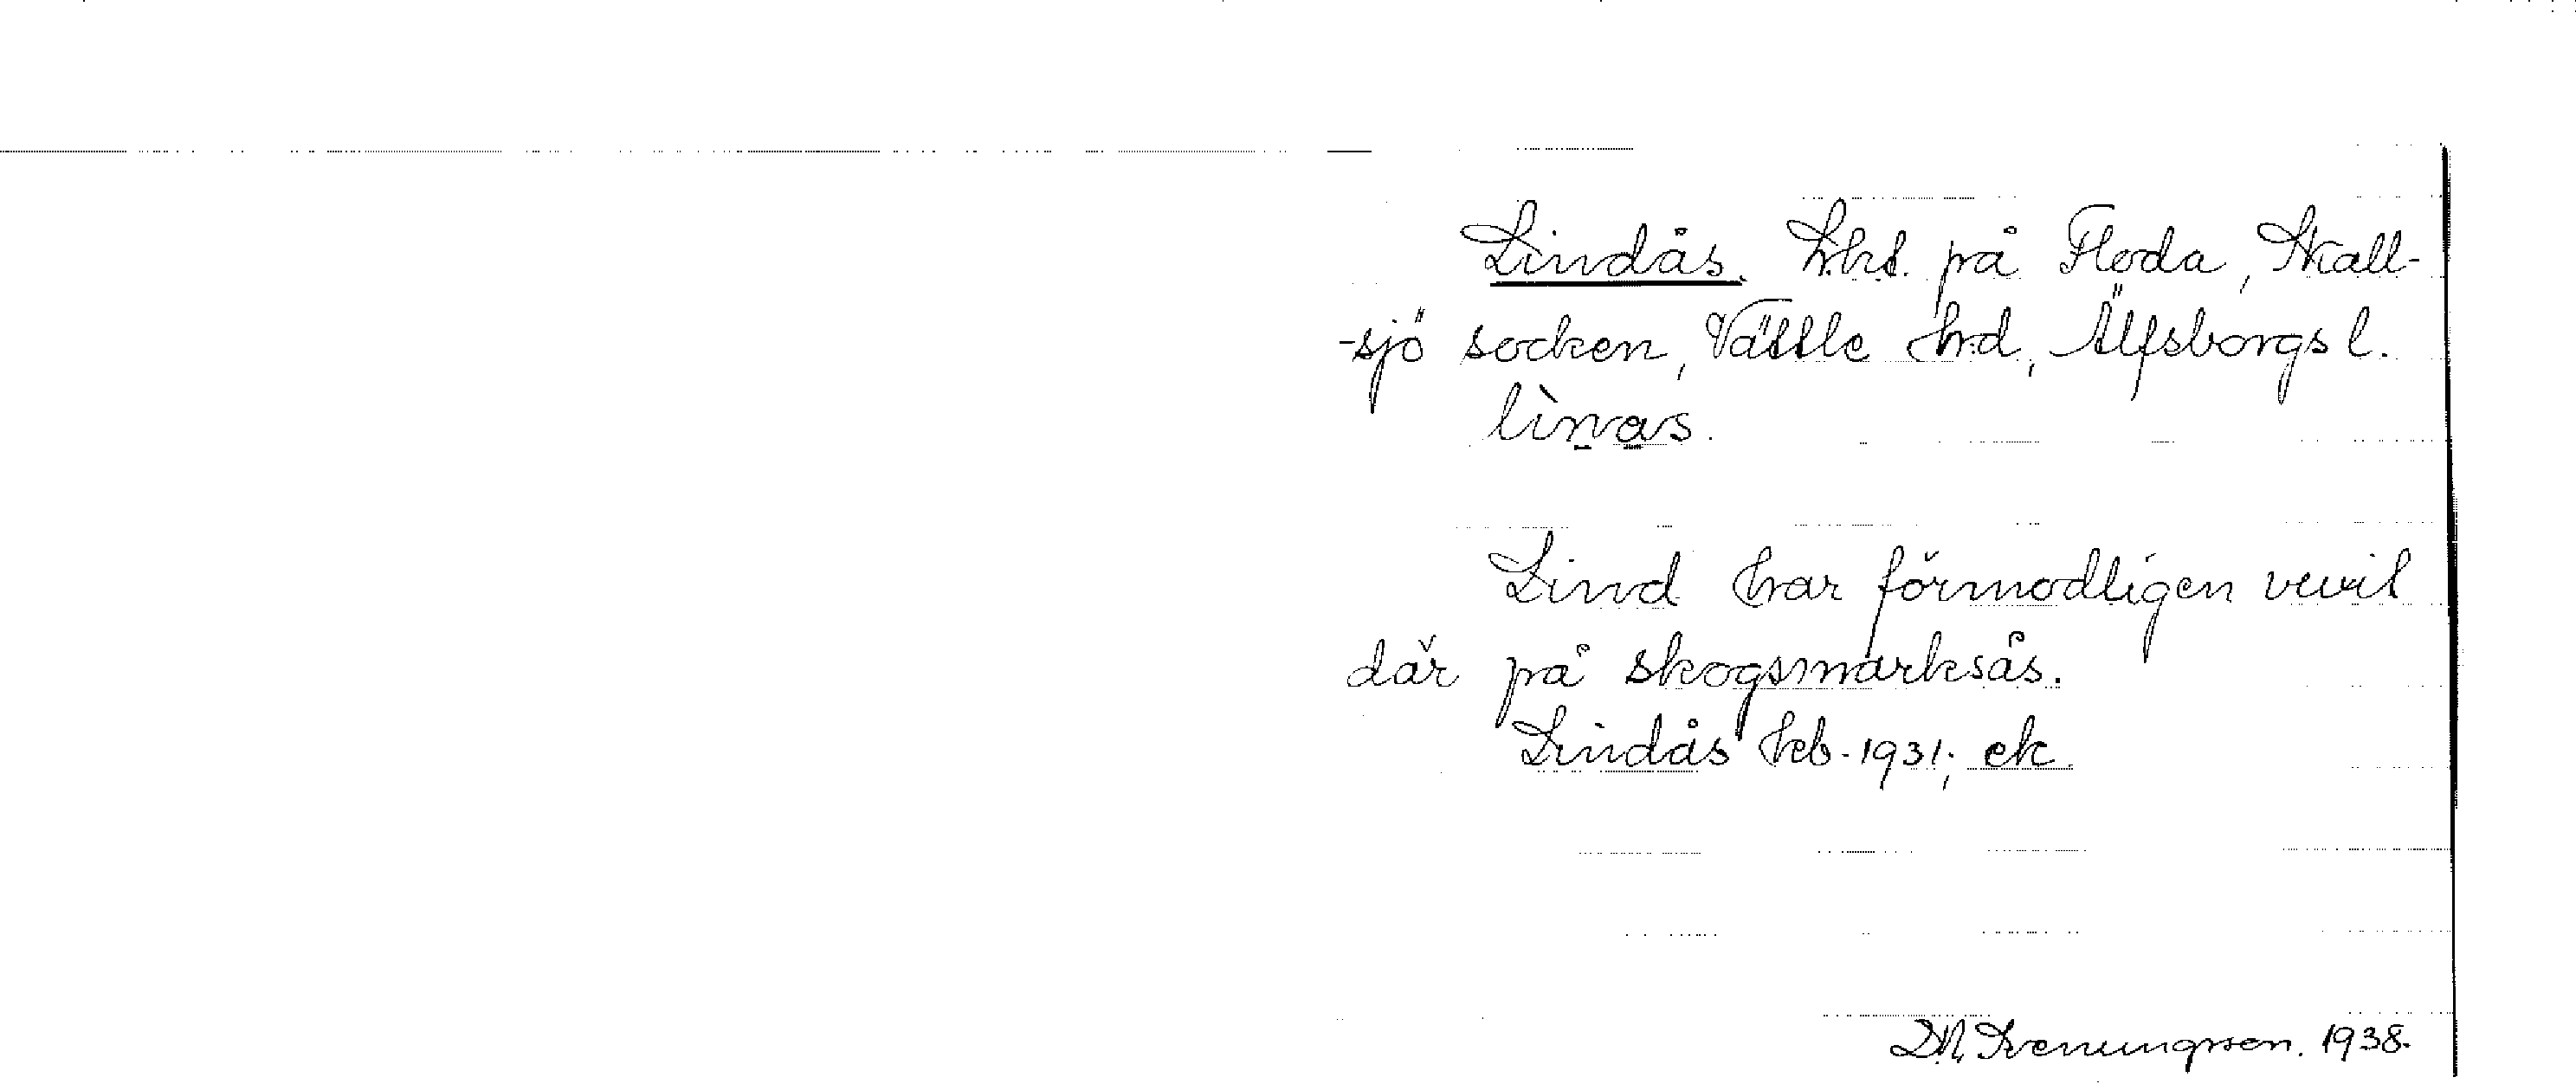 Lindås. Lht. på Floda, Skall-
-sjö socken, Vättle hd, Älfsborgs l.
lìnas.
Lind har förmodligen vuxit
där på skogsmarksås.
Lindås Jeb. 1931; ek.
D.A. Svenungsson. 1938.